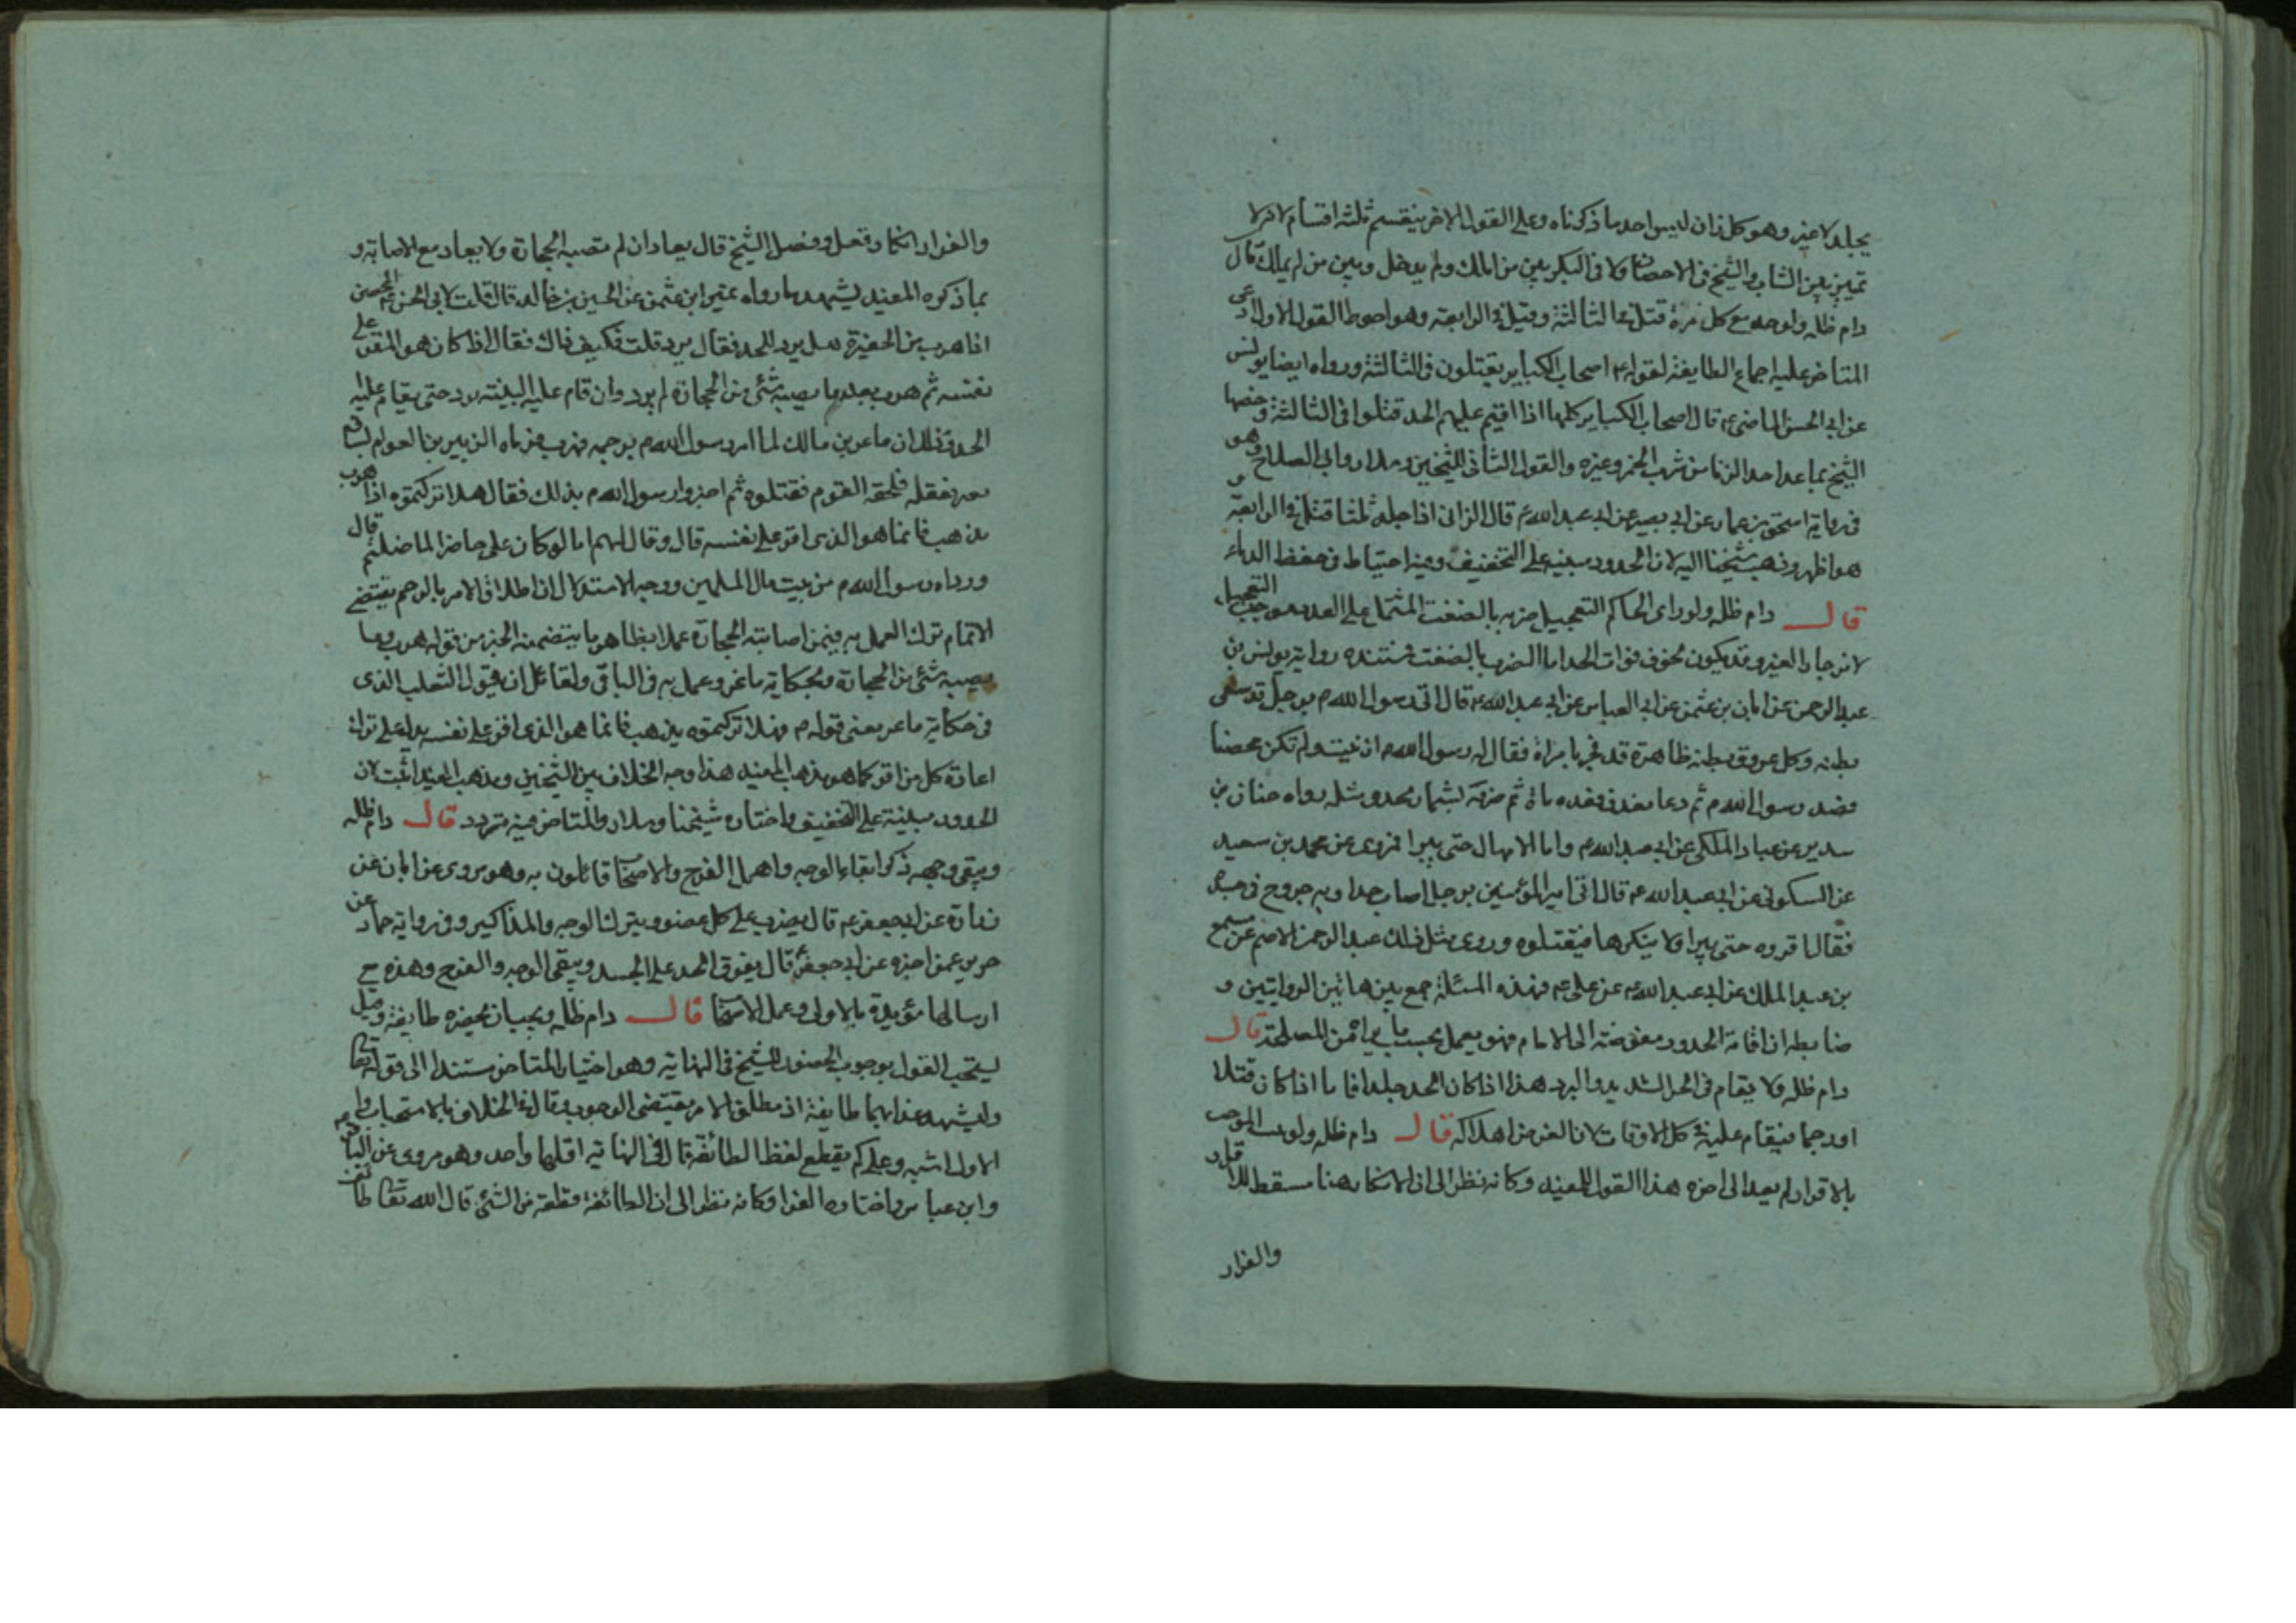 يجلد لا غير وهو كل زان ليس احد ما ذكرناه وعلى القول الاخر ينقسم ثلثة اقسام لانه لا
تميز بين الشاب والشيخ في الاحصان ولا في البكر بين من املك ولم يدخل وبين من لم يملك قال
دام ظله ولو حد مع كل مرة قتل في الثالثة وقيل في الرابعة وهو احوط القول الاول ادعى
المتاخر عليه اجماع الطايفة لقوله ع اصحاب الكباير يقتلون في الثالثة ورواه ايضا يونس
عن ابي الحسن الماضي ع قال اصحاب الكباير كلها اذا اقيم عليهم الحد قتلوا في الثالثة وخصها
الشيخ بما عدا حد الزنا من شرب الخمر وغيره والقول الثاني للشيخين وسلار وابي الصلاح وهو
في رواية اسحق بن عمار عن ابي بصير عن ابي عبد الله ع قال الزاني اذا جلد ثلثا قتل في الرابعة
هو اظهر وذهب شيخنا اليه لان الحدود مبنية على التخفيف وفيه احتياط في حفظ الدماء
قال دام ظله ولو راى الحاكم التعجيل ضربه بالضغث المشتمل على العدد موجب التعجيل
لانزجار الغير وقد يكون لخوف فوات الحد اما الضرب بالضغث فمستنده رواية يونس بن
عبد الرحمن عن ابان بن عثمن عن ابي العباس عن ابي عبد الله ع قال اتى رسول الله ص برجل قد سقى
بطنه وكل عروق بطنه ظاهرة قد فجر بامراة فقال له رسول الله ص ازنيت ولم تكن محصنا
فصد رسول الله ص ثم دعا بعذق فعده ماة ثم ضربه بشماريخه ومثله رواه حنان بن
سدير عن عباد المكي عن ابي عبد الله ع واما الامهال حتى يبرا فروى عن محمد بن سعيد
عن السكوني عن ابي عبد الله ع قال اتى امير المؤمنين برجل اصاب حدا وبه جروح في جسده
فقال اقروه حتى يبرا ولا ينكرها فيقتلوه وروى مثل ذلك عبد الرحمن الاصم عن مسمع
بن عبد الملك عن ابي عبد الله ع عن علي ع فهذه المسئلة جمع بين هاتين الروايتين و
ضابطه ان اقامة الحدود مفوضة الى الامام فهو يعمل بحسب ما يراه من المصلحة قال
دام ظله ولا يقام في الحر الشديد والبرد هذا اذا كان الحد جلدا فاما اذا كان قتلا
او رجما فيقام عليه في كل الاوقات لان الغرض اهلاكه قال دام ظله ولو هرب الموجب
بالاقرار لم يعد الى اخره هذا القول للمفيد وكانه نظر الى ان الانكار هنا مسقط للاقرار
والفرار
والفرار انكار فعل وفصل الشيخ قال يعاد ان لم تصبه الحجارة ولا يعاد مع الاصابة و
بما ذكره المفيد يشهد ما رواه عيسى ابن عثمن عن الحسين بن خالد قال قلت لابي الحسن ع المحصن
اذا هرب من الحفيرة هل يرد للحد فقال يرد قلت فكيف ذاك فقال اذا كان هو المقر على
نفسه ثم هرب بعد ما يصيبه شئ من الحجارة لم يرد وان قام عليه البينة يرد حتى يقام عليه
الحد وذلك ان ماعز بن مالك لما امر رسول الله ص برجمه فهرب فرماه الزبير بن العوام بساق
بعير فعقله فلحقه القوم فقتلوه ثم اخبروا رسول الله ص بذلك فقال هلا تركتموه اذا هرب
يذهب فانما هو الذي اقر على نفسه قال وقال لهم اما لو كان علي حاضرا لما ضللتم قال
ووداه رسول الله ص من بيت مال المسلمين ووجه الاستدلال ان اطلاق الامر بالرجم يقتضي
الاتمام ترك العمل به فيمن اصابته الحجارة عملا بظاهر ما يتضمنه الخبر من قوله هرب بعد ما
يصيبه شئ من الحجارة وبحكاية ماعز وعمل به في الباقي ولقائل ان يقول التعليل الذي
في حكاية ماعز يعني قوله ص فهلا تركتموه يذهب فانما هو الذي اقر على نفسه يدل على ترك
اعادة كل من اقر كما هو مذهب المفيد هذا وجه الخلاف بين الشيخين ومذهب المفيد اثبت لان
الحدود مبنية على التخفيف واختاره شيخنا وسلار وللمتاخر فيه تردد قال دام ظله
ويتقى وجهه ذكر اتقاء الوجه واهمل الفرج والاصحاب قائلون به وهو مروي عن ابان عن
زرارة عن ابي جعفر ع قال يضرب على كل عضو ويترك الوجه والمذاكير وفي رواية حماد عن
حريز عمن اخبره عن ابي جعفر ع قال يفرق الحد على الجسد ويتقى الوجه والفرج وهذه مع
ارسالها مؤيدة بالاولى وعمل الاصحاب قال دام ظله ويجب ان يحضره طايفة وقيل
يستحب القول بوجوب الحضور للشيخ في النهاية وهو اختيار المتاخر مستندا الى قوله تعالى
وليشهد عذابهما طايفة اذ مطلق الامر يقتضي الوجوب وقال في الخلاف بالاستحباب
الاول اشبه وعلى كم يقطع لفظ الطائفة قال في النهاية اقلها واحد وهو مروي عن الباقر ع
وابن عباس واختاره الفرا وكانه نظر الى ان الطائفة قطعة من الشئ قال الله تعالى طائفتان